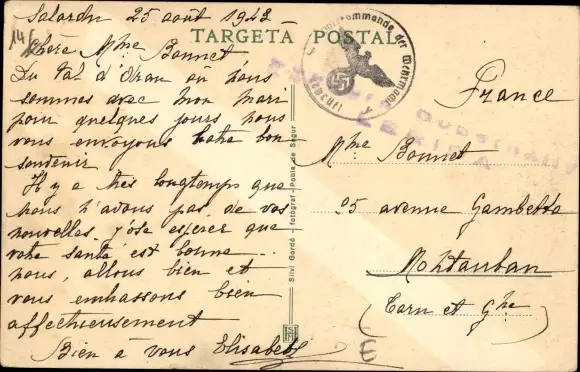 Salardu 25 août 1943
14/9
TARGETA POSTAL
Chère Mme Bonnet
Du Val d'Aran où nous
sommes avec mon mari
pour quelques jours nous
vous envoyons notre bon
souvenir
Il y a très longtemps que
nous n'avons pas de vos
nouvelles. J'ose esperer que
votre santé est bonne
nous, allons bien et
vous embrassons bien
affectueusement
Bien à vous Elisabeth
Silvi Gordó - fotògraf - Pobla de Segur
der Wehrmacht
LERIDA
France
Mme Bonnet
25 avenue Gambetta
Montauban
(Tarn et Gne)
E